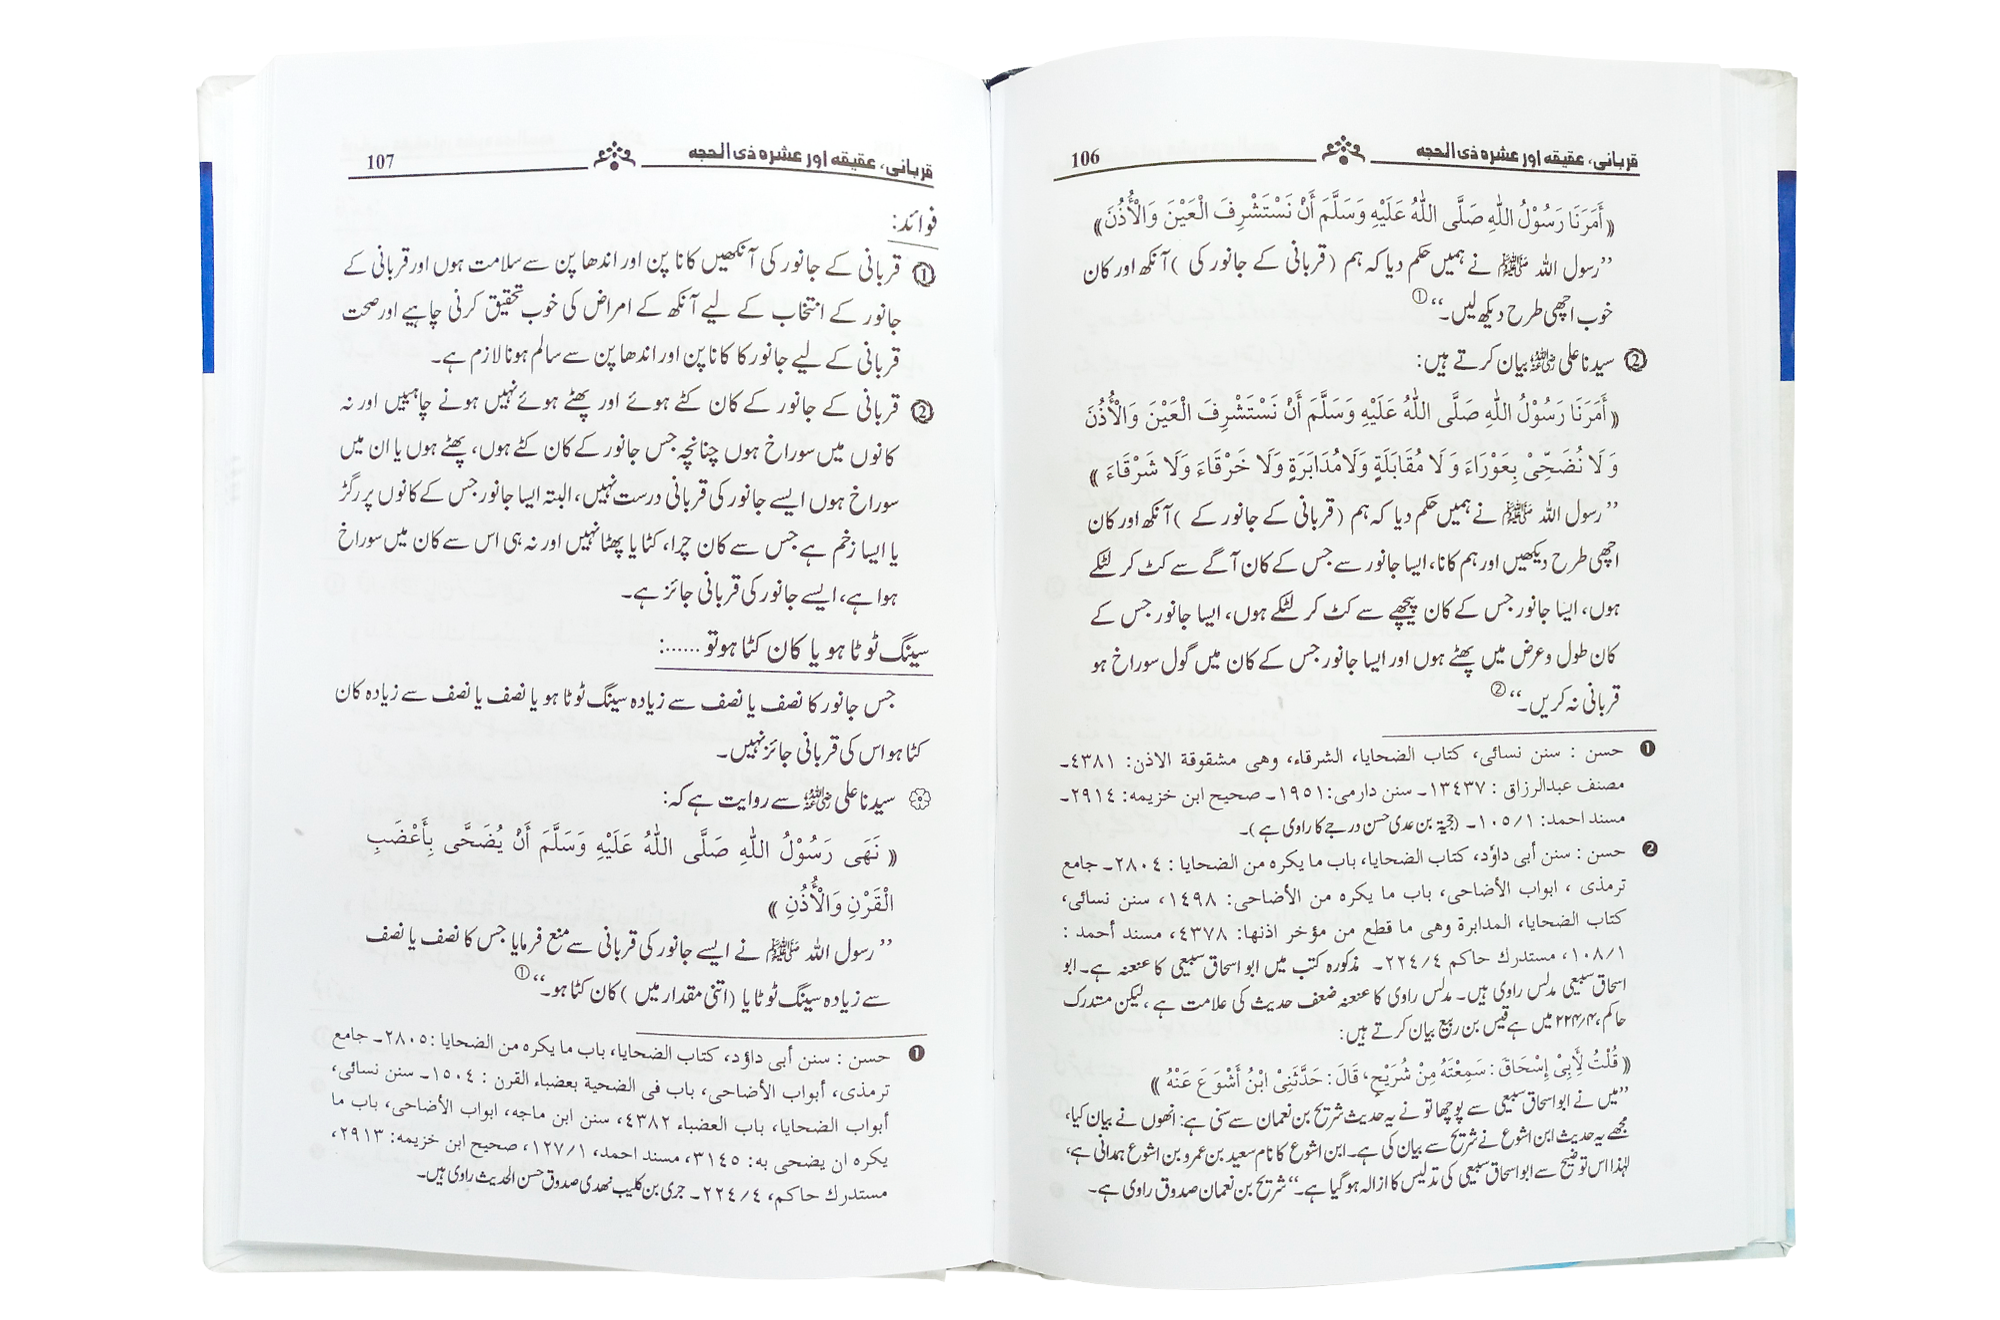 قربانی، عقیقه اور عشره ذی الحجه
106
﴿أَمَرَنَا رَسُوْلُ اللّٰهِ صَلَّى اللّٰهُ عَلَيْهِ وَسَلَّمَ أَنْ نَسْتَشْرِفَ الْعَيْنَ وَالْأُذُنَ﴾
’’رسول اللہ ﷺ نے ہمیں حکم دیا کہ ہم (قربانی کے جانور کی) آنکھ اور کان
خوب اچھی طرح دیکھ لیں۔‘‘①
② سیدنا علی رضی اللہ عنہ بیان کرتے ہیں:
﴿أَمَرَنَا رَسُوْلُ اللّٰهِ صَلَّى اللّٰهُ عَلَيْهِ وَسَلَّمَ أَنْ نَسْتَشْرِفَ الْعَيْنَ وَالْأُذُنَ
وَلَا نُضَحِّيْ بِعَوْرَاءَ وَلَا مُقَابَلَةٍ وَلَا مُدَابَرَةٍ وَلَا خَرْقَاءَ وَلَا شَرْقَاءَ﴾
’’رسول اللہ ﷺ نے ہمیں حکم دیا کہ ہم (قربانی کے جانور کے) آنکھ اور کان
اچھی طرح دیکھیں اور ہم کانا، ایسا جانور سے جس کے کان آگے سے کٹ کر لٹکے
ہوں، ایسا جانور جس کے کان پیچھے سے کٹ کر لٹکے ہوں، ایسا جانور جس کے
کان طول و عرض میں پھٹے ہوں اور ایسا جانور جس کے کان میں گول سوراخ ہو
قربانی نہ کریں۔‘‘②
❶ حسن : سنن نسائی، کتاب الضحایا، الشرقاء، وهی مشقوقة الاذن: ٤٣٨١۔
مصنف عبدالرزاق : ١٣٤٣٧۔ سنن دارمی: ١٩٥١۔ صحیح ابن خزیمه: ٢٩١٤۔
مسند احمد: ١/١٠٥۔ (حجیۃ بن عدی حسن درجے کا راوی ہے)۔
❷ حسن : سنن أبی داؤد، کتاب الضحایا، باب ما یکره من الضحایا : ٢٨٠٤۔ جامع
ترمذی ، ابواب الأضاحی، باب ما یکره من الأضاحی: ١٤٩٨، سنن نسائی،
کتاب الضحایا، المدابرة وهی ما قطع من مؤخر اذنها: ٤٣٧٨، مسند أحمد :
١/١٠٨، مستدرك حاکم ٤/٢٢٤۔ مذکورہ کتب میں ابو اسحاق سبیعی کا عنعنہ ہے۔ ابو
اسحاق سبیعی مدلس راوی ہیں۔ مدلس راوی کا عنعنہ ضعف حدیث کی علامت ہے، لیکن مستدرک
حاکم، ۴/۲۲۴ میں ہے قیس بن ربیع بیان کرتے ہیں:
﴿قُلْتُ لِأَبِيْ إِسْحَاقَ : سَمِعْتَهُ مِنْ شُرَيْحٍ، قَالَ : حَدَّثَنِيْ ابْنُ أَشْوَعَ عَنْهُ﴾
’’میں نے ابو اسحاق سبیعی سے پوچھا تو نے یہ حدیث شریح بن نعمان سے سنی ہے: انھوں نے بیان کیا،
مجھے یہ حدیث ابن اشوع نے شریح سے بیان کی ہے۔ ابن اشوع کا نام سعید بن عمرو بن اشوع ہمدانی ہے،
لہٰذا اس توضیح سے ابو اسحاق سبیعی کی تدلیس کا ازالہ ہو گیا ہے۔‘‘ شریح بن نعمان صدوق راوی ہے۔
قربانی، عقیقه اور عشره ذی الحجه
107
فوائد:
① قربانی کے جانور کی آنکھیں کانا پن اور اندھا پن سے سلامت ہوں اور قربانی کے
جانور کے انتخاب کے لیے آنکھ کے امراض کی خوب تحقیق کرنی چاہیے اور صحت
قربانی کے لیے جانور کا کانا پن اور اندھا پن سے سالم ہونا لازم ہے۔
② قربانی کے جانور کے کان کٹے ہوئے اور پھٹے ہوئے نہیں ہونے چاہییں اور نہ
کانوں میں سوراخ ہوں چنانچہ جس جانور کے کان کٹے ہوں، پھٹے ہوں یا ان میں
سوراخ ہوں ایسے جانور کی قربانی درست نہیں، البتہ ایسا جانور جس کے کانوں پر رگڑ
یا ایسا زخم ہے جس سے کان چرا، کٹا یا پھٹا نہیں اور نہ ہی اس سے کان میں سوراخ
ہوا ہے، ایسے جانور کی قربانی جائز ہے۔
سینگ ٹوٹا ہو یا کان کٹا ہو تو ......:
جس جانور کا نصف یا نصف سے زیادہ سینگ ٹوٹا ہو یا نصف یا نصف سے زیادہ کان
کٹا ہو اس کی قربانی جائز نہیں۔
سیدنا علی رضی اللہ عنہ سے روایت ہے کہ:
﴿نَهَى رَسُوْلُ اللّٰهِ صَلَّى اللّٰهُ عَلَيْهِ وَسَلَّمَ أَنْ يُضَحَّى بِأَعْضَبِ
الْقَرْنِ وَالْأُذُنِ﴾
’’رسول اللہ ﷺ نے ایسے جانور کی قربانی سے منع فرمایا جس کا نصف یا نصف
سے زیادہ سینگ ٹوٹا یا (اتنی مقدار میں) کان کٹا ہو۔‘‘①
❶ حسن : سنن أبی داؤد، کتاب الضحایا، باب ما یکره من الضحایا :٢٨٠٥۔ جامع
ترمذی، أبواب الأضاحی، باب فی الضحیة بعضباء القرن : ١٥٠٤۔ سنن نسائی،
أبواب الضحایا، باب العضباء ٤٣٨٢، سنن ابن ماجه، ابواب الأضاحی، باب ما
یکره ان یضحی به: ٣١٤٥، مسند احمد، ١/١٢٧، صحیح ابن خزیمه: ٢٩١٣،
مستدرك حاکم، ٤/٢٢٤۔ جری بن کلیب نهدی صدوق حسن الحدیث راوی ہیں۔